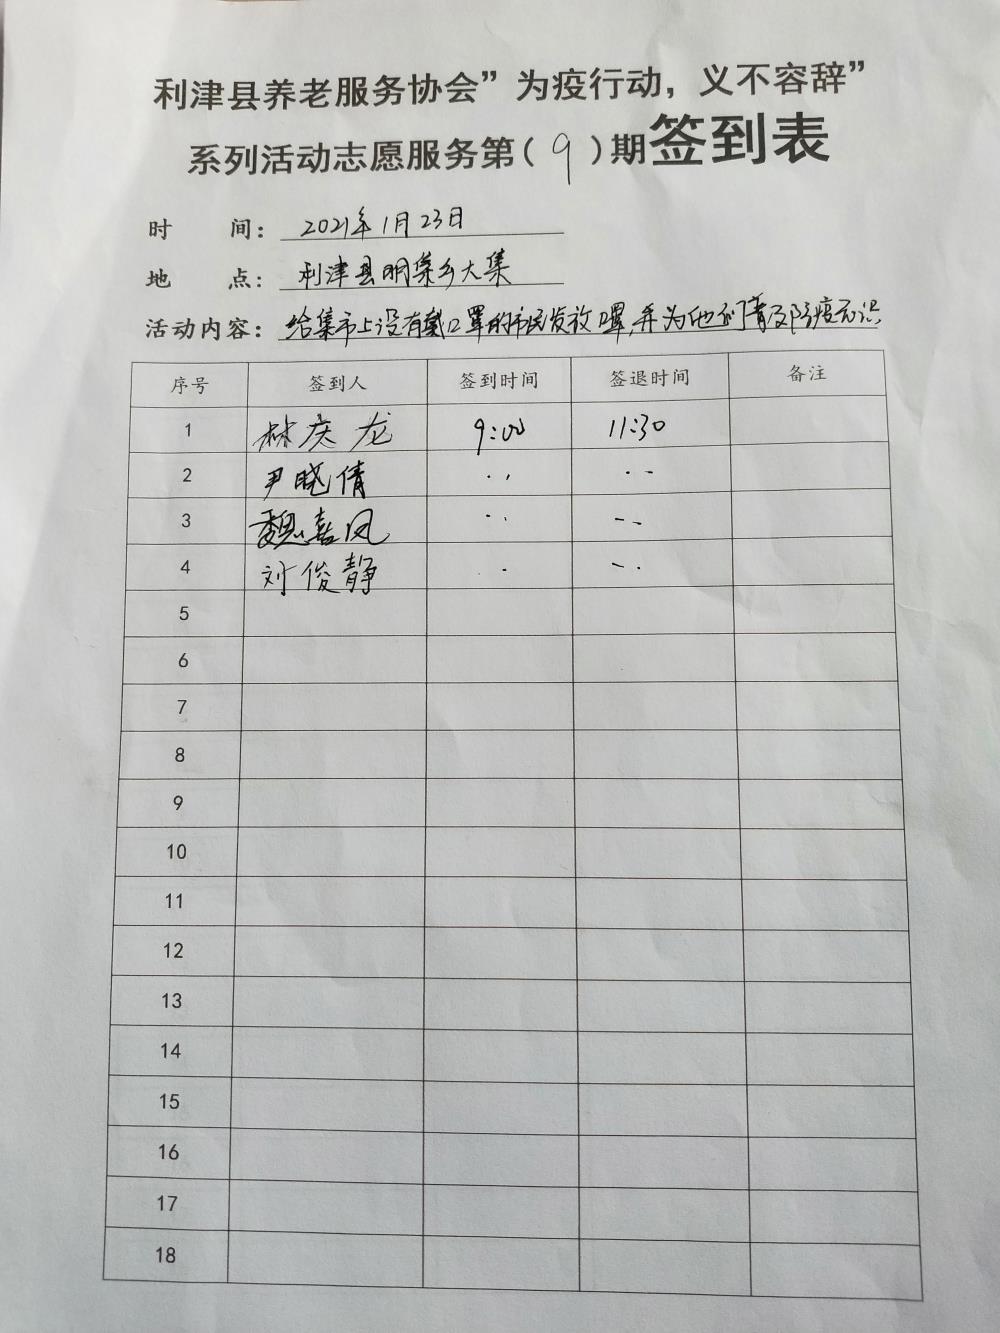 利津县养老服务协会”为疫行动，义不容辞”
系列活动志愿服务第（9）期签到表
时 间：2021年1月23日
地 点：利津县明集乡大集
活动内容：给集市上没有戴口罩的市民发放口罩,并为他们普及防疫知识
序号 签到人 签到时间 签退时间 备注
1 林庆龙 9:00 11:30
2 尹晓倩 ‥ ‥
3 魏嘉凤 ‥ ‥
4 刘俊静 · ‥
5
6
7
8
9
10
11
12
13
14
15
16
17
18